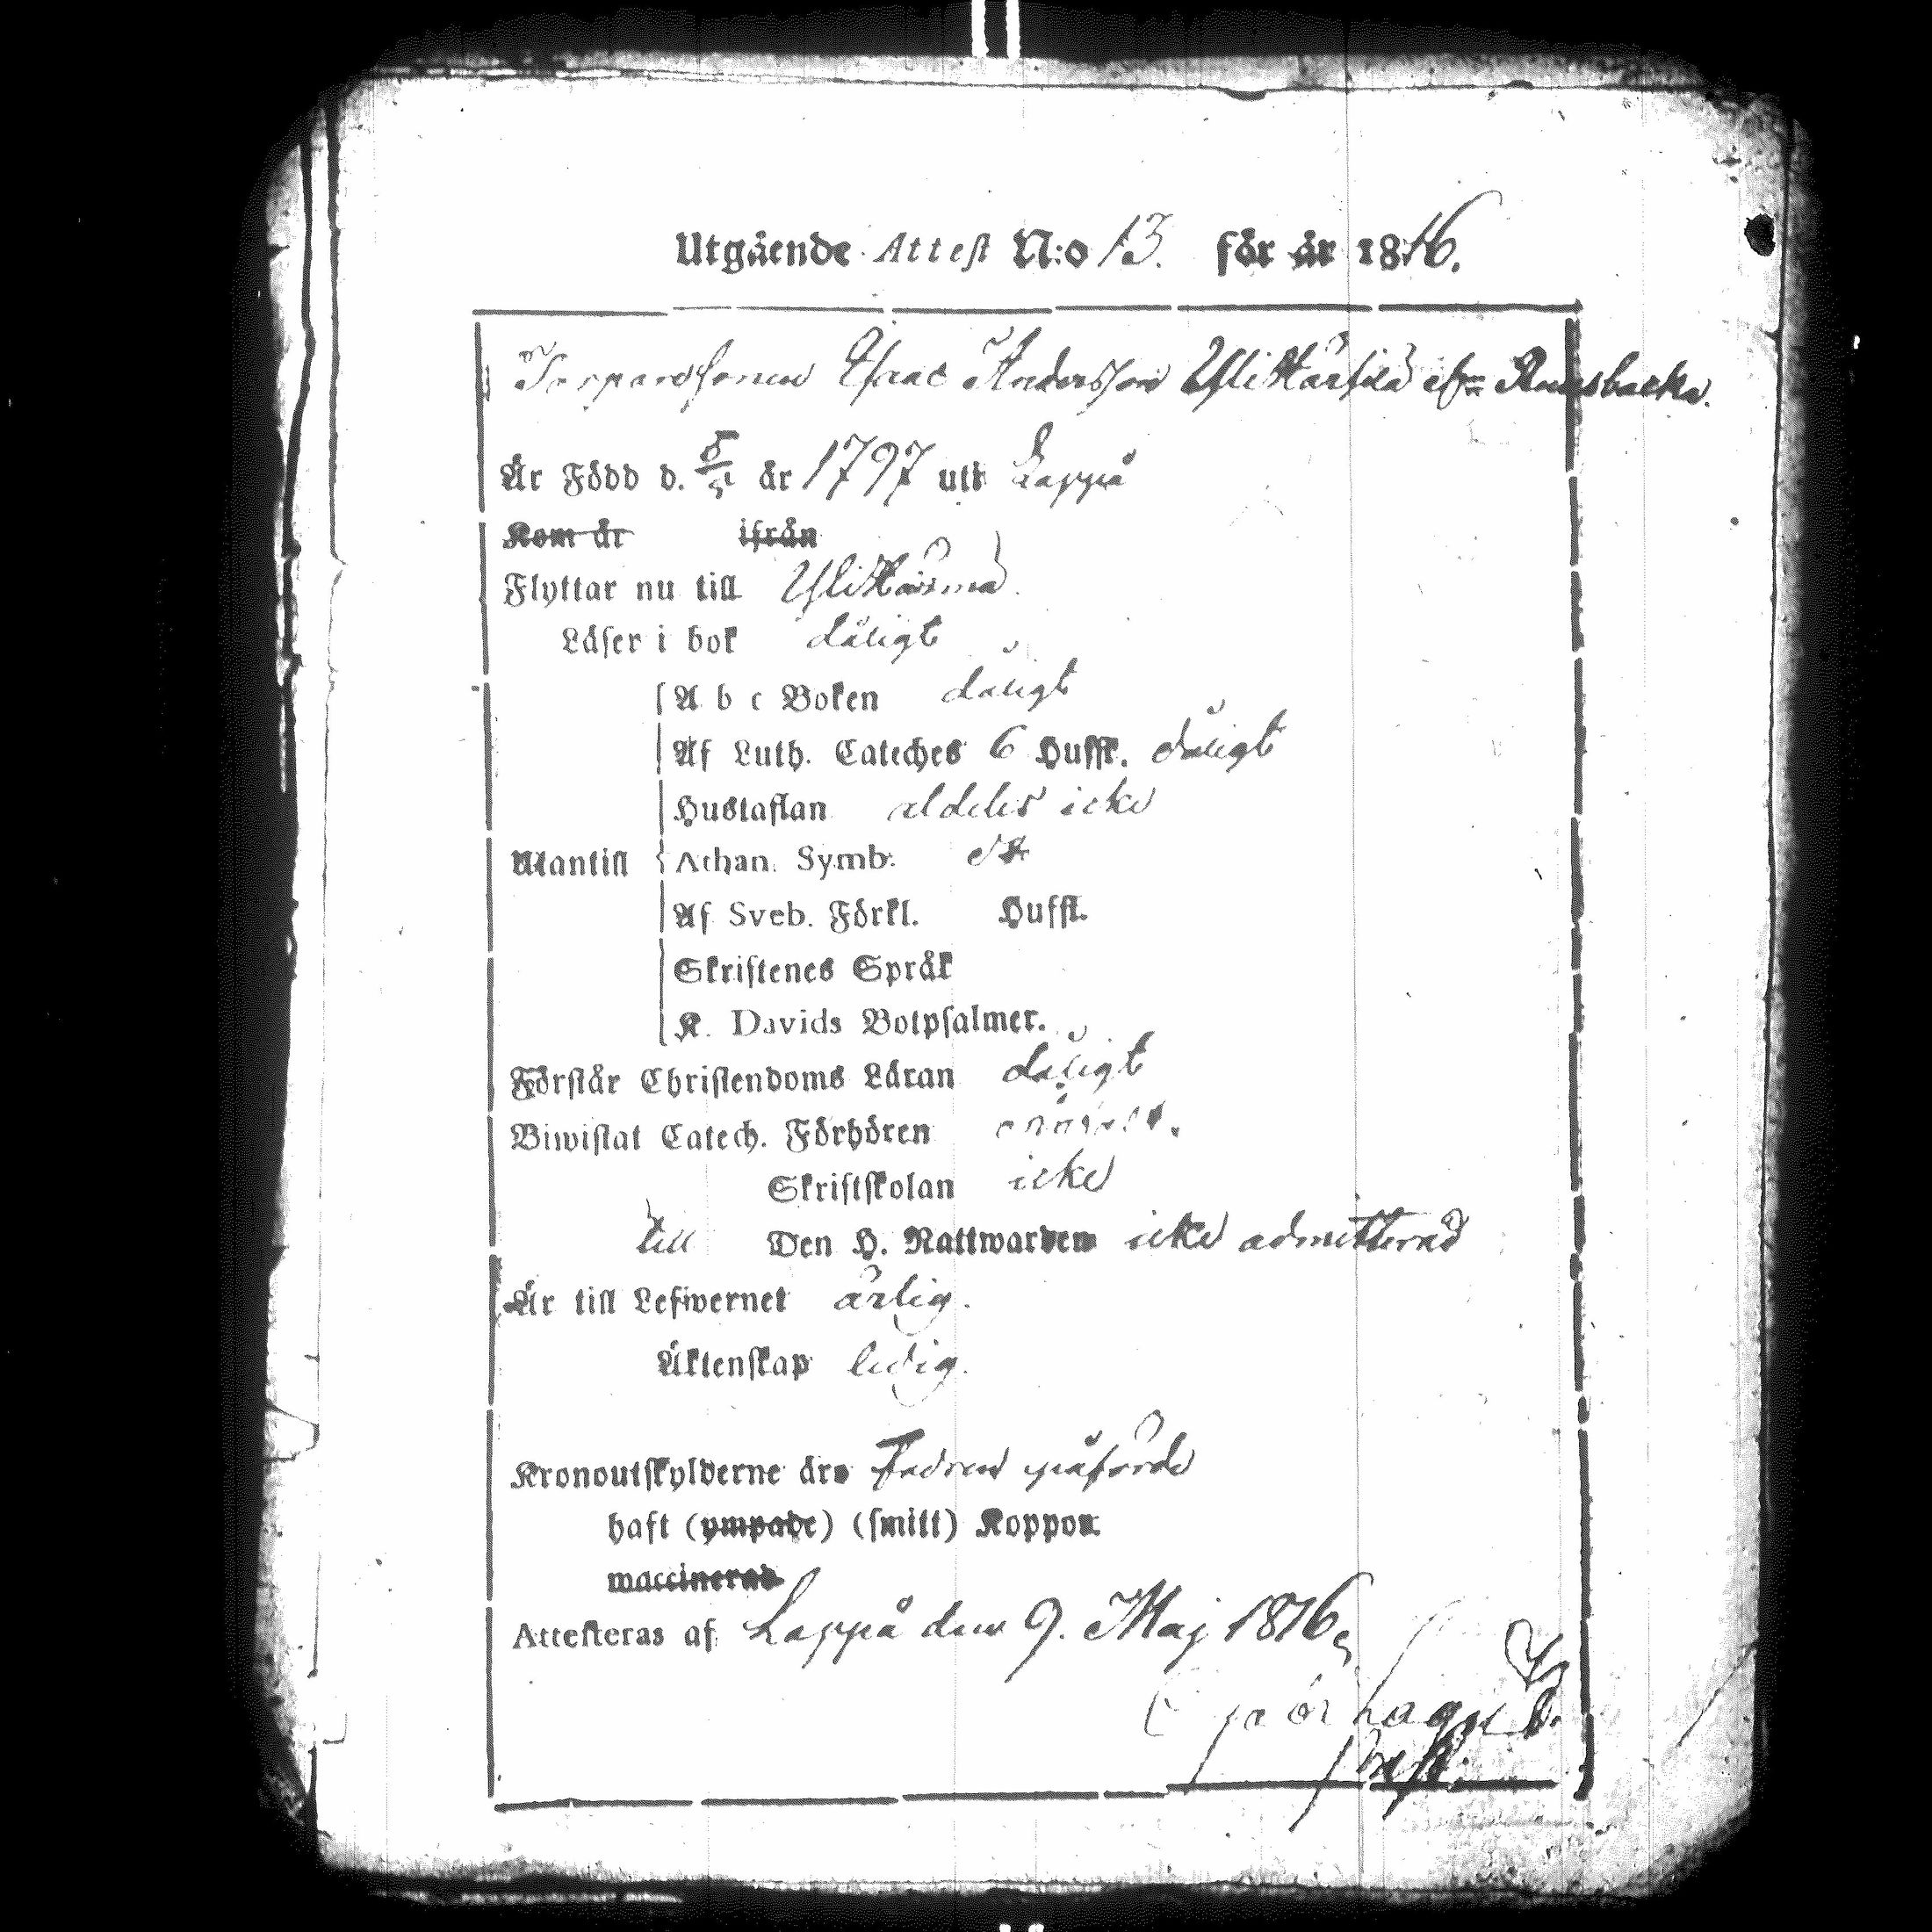 Utgående Attest N:o 13. för år 1816.
Torparesonen Isaac Andersson Ylikärsilä ifrn Ramsbacka.
Är Född d. 5/5 år 1797 uti Lappå
Kom år ifrån
Flyttar nu till
Läser i bok dåligt
A b c Boken dåligt
Af Luth. Cateches 6 Huffst. dåligt
Hustaflan aldeles icke
Utantill Athan. Symb. do
Af Sveb. Förkl. Huffst.
Skriftenes Språk
K. Davids Botpsalmer.
Förstår Christendoms Läran dåligt
Biwistat Catech. Förhören
Skriftskolan icke
till Den H. Nattwarden icke admitterad
Är till Lefwernet ärlig.
Äktenskap ledig.
Kronoutskylderne äro Fadren påförde
haft (ympade) (smitt) Koppor
waccinerad
Attesteras af Lappå den 9. Maj 1816